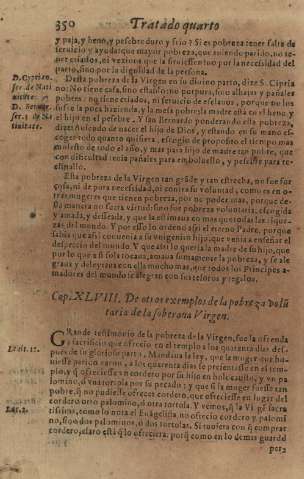 350 Tratado quarto
y paja, y heno, y pesebre duro y frio? Si es pobreza tener falta de
seruicio y ayuda que mayor pobreza, que auiendo parido, no te-
ner criados, ni vezinos que la siruiessen no por la necessidad del
parto, sino por la dignidad de la persona.
D. Cyprian.
ser. de Nati
uitate.
D. Bernar.
ser. 3. de Na
tiuitate.
Desta pobreza de la Virgen en lo diuino parto, dize S. Cipria
no: No tiene casa, sino establo; no purpura, sino alhajas y pañales
pobres, no tiene criados, ni seruicio de esclauos, porque no los
sufre la poca hazienda, y la mesa pobre la madre està en el heno, y
el hijo en el pesebre. Y san Bernardo ponderando esta pobreza,
dize: Auiendo de nacer el hijo de Dios, y estando en su mano es-
coger todo quanto quisiera, escogio de proposito el tiempo mas
molesto de todo el año, y nacer para hijo de madre tan pobre, que
con dificultad tenia pañales para emboluello, y pesebre para re-
clinallo.
Esta pobreza de la Virgen tan grãde y tan estrecha, no fue for
çosa, ni de pura necessidad, ni contra su voluntad, como es en o-
tras mugeres que tienen pobreza, por no poder mas, porque de-
sta manera no fuera virtud: fue su pobreza voluntaria, escogida
y amada, y desseada, y que la estimaua en mas que todas las rique-
zas del mundo. Y por esso lo ordenò assi el eterno Padre, porque
sabia que assi conuenia a su vnigenito hijo, que venia a enseñar el
desprecio del mundo. Y que assi lo queria la madre de su hijo, que
por lo que a si sola tocaua, amaua sumamente la pobreza, y se ale
graua y deleytaua con ella mucho mas, que todos los Principes a-
madores del mundo se alegran con sus tesoros y regalos.
Cap. XLVIII. De otros exemplos de la pobreza volũ
taria de la soberana Virgen.
GRande testimonio de la pobreza de la Virgen, fue la ofrenda
y sacrificio que ofrecio en el templo a los quarenta dias des-
pues de su glorioso parto. Mandaua la ley, que la muger que hu-
uiesse parido varon, a los quarenta dias se presentasse en el tem-
plo, y q̃ ofreciesse vn cordero por su hijo en holocausto, y vn pa
lomino, o vna tortola por su pecado: y que si la muger fuesse tan
pobre, q̃ no pudiesse ofrecer cordero, que ofreciesse en lugar del
cordero otro palomino, o otra tortola. Y vemos, q̃ la Virgẽ sacra
tissima, como lo nota el Euãgelista, no ofrecio cordero y palomi
no, sino dos palominos, o dos tortolas. Si tuuiera con q̃ comprar
cordero, claro està q̃ lo ofreciera: porq̃ como en lo demas guardó
Leuit. 12.
Luc. 2.